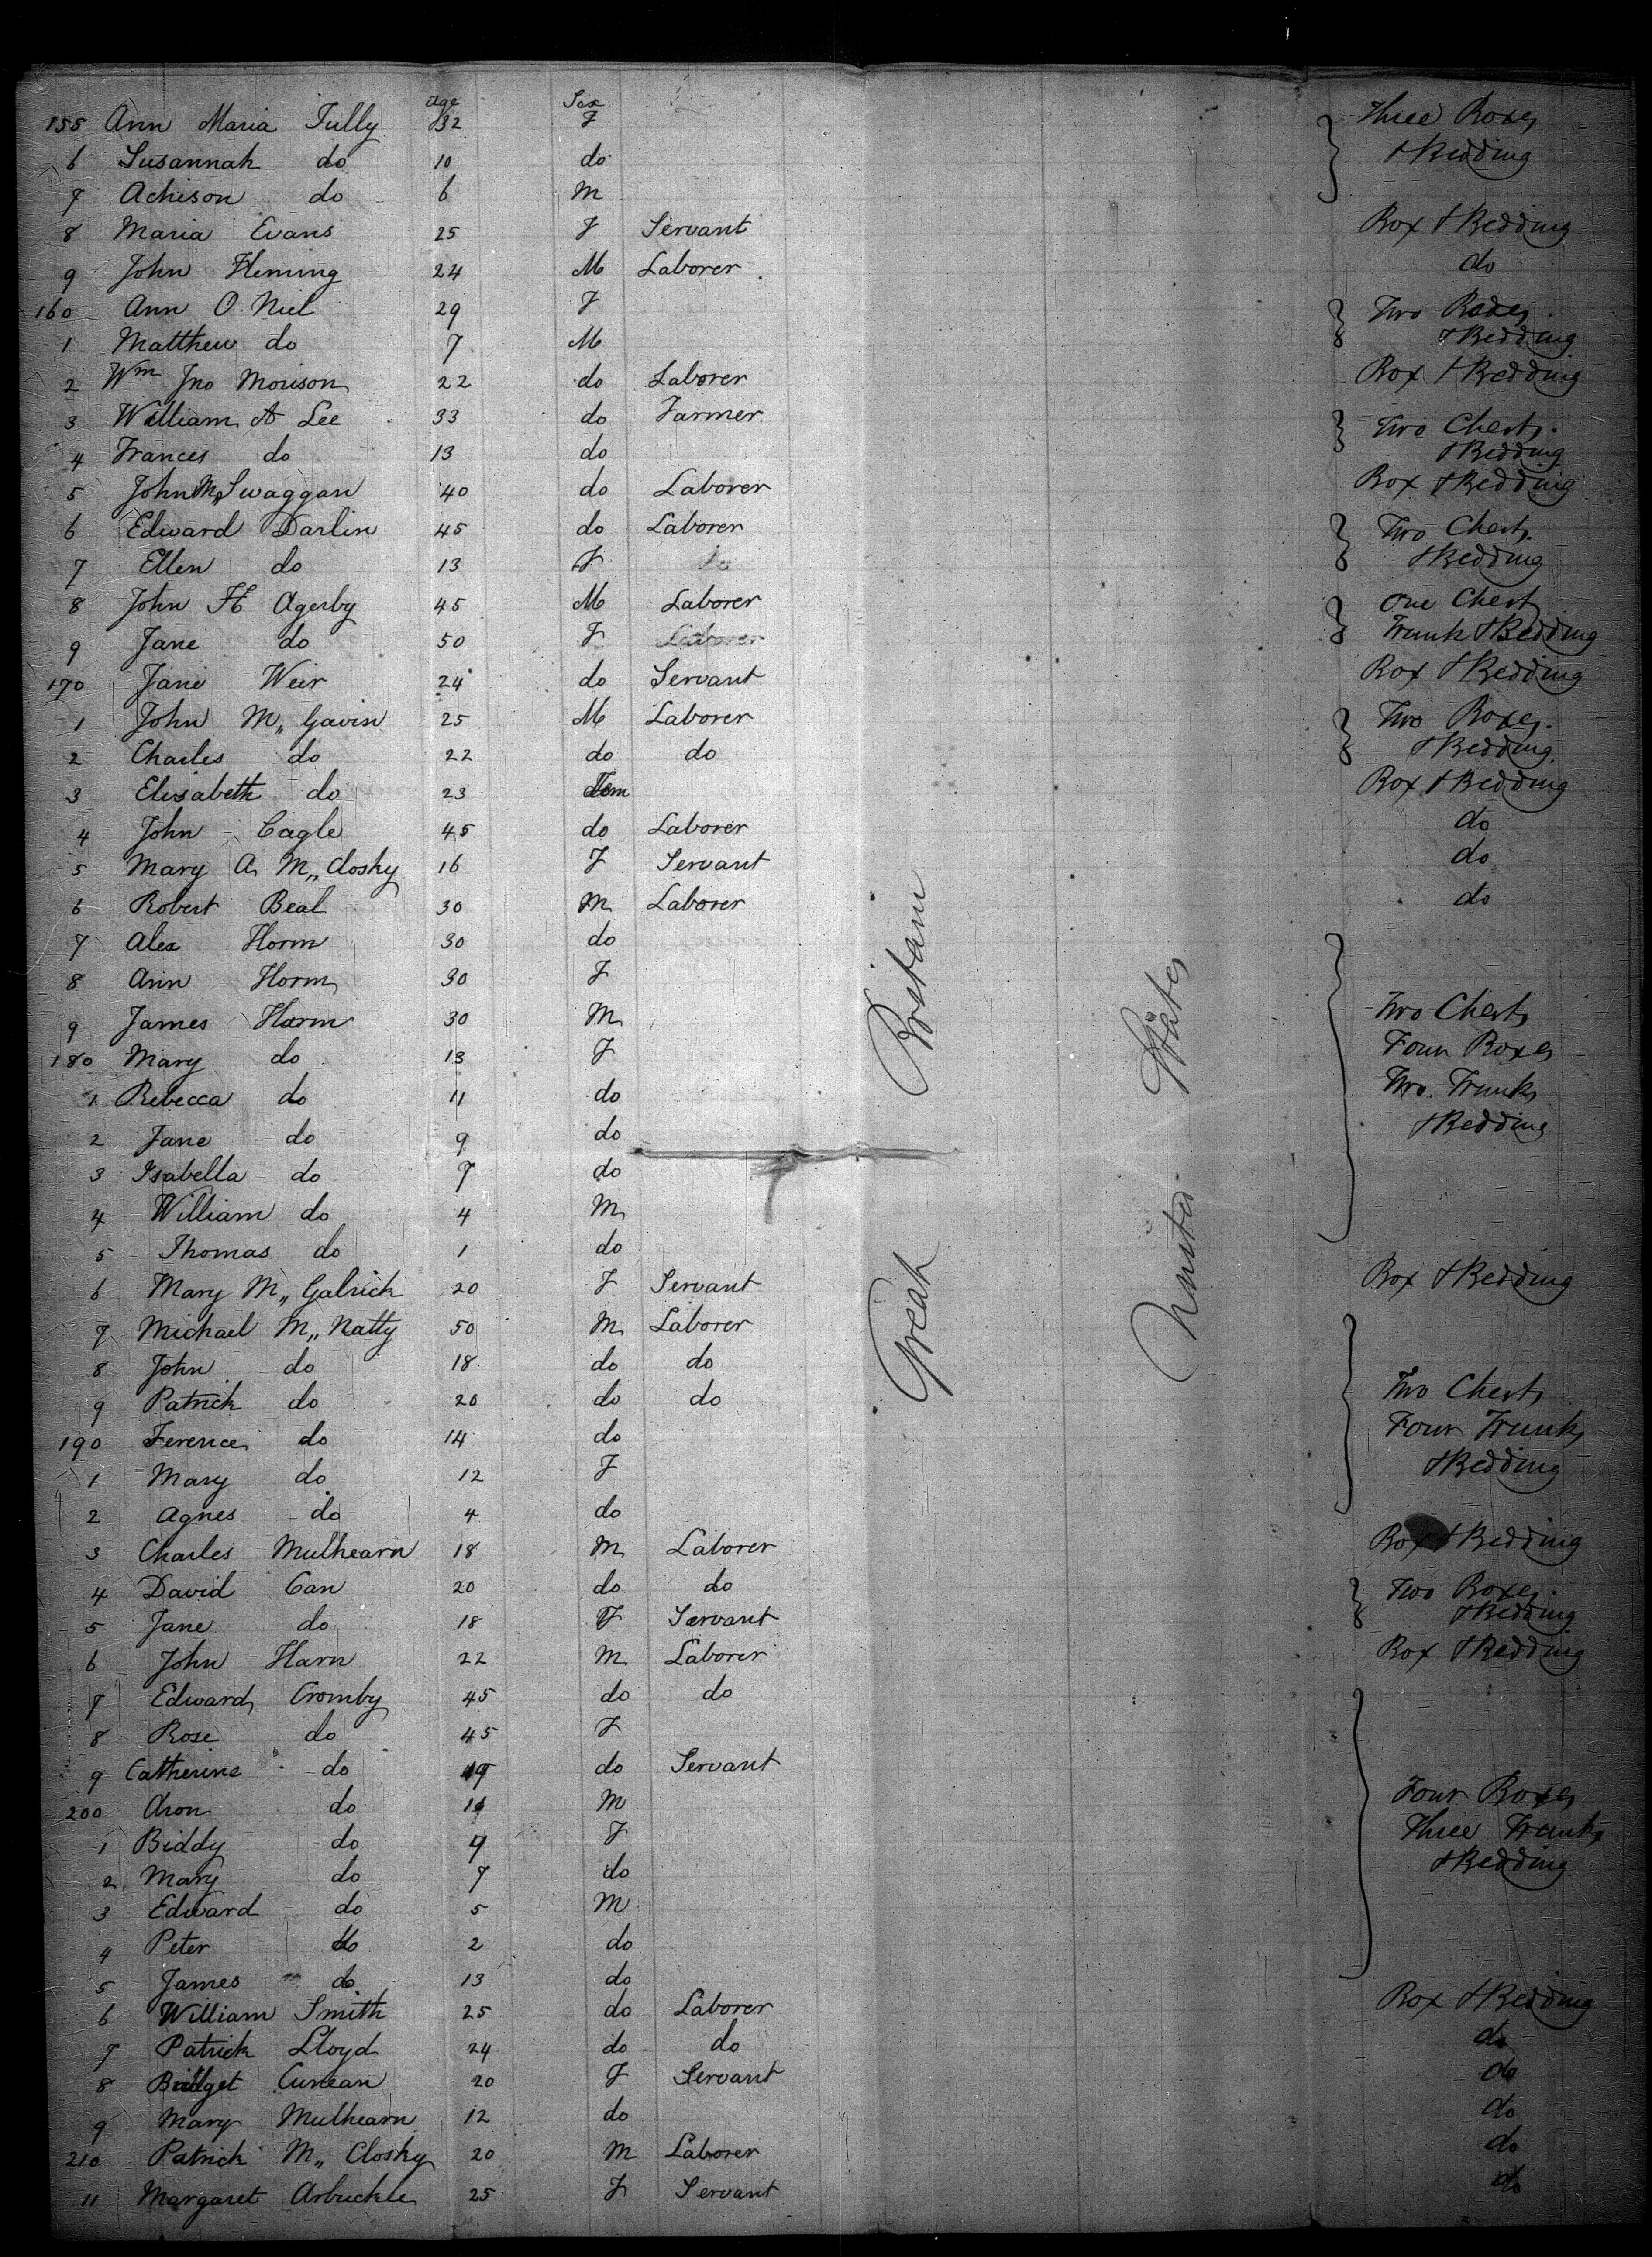 Age Sex
155 Ann Maria Tully 32 F Three Boxes
6 Susannah do 10 do & Bedding
7 Achison do 6 M
8 Maria Evans 25 F Servant Box & Bedding
9 John Fleming 24 M Laborer do
160 Ann O Niel 29 F Two Boxes
1 Matthew do 7 M & Bedding
2 Wm Jno Morison 22 do Laborer Box & Bedding
3 William A Lee 33 do Farmer Two Chests
4 Frances do 13 do & Bedding
5 John M,, Swaggan 40 do Laborer Box & Bedding
6 Edward Darlin 45 do Laborer Two Chests
7 Ellen do 13 F do & Bedding
8 John H Agerby 45 M Laborer One Chest
9 Jane do 50 F Laborer Trunk & Bedding
170 Jane Weir 24 do Servant Box & Bedding
1 John M,, Gavin 25 M Laborer Two Boxes
2 Charles do 22 do do & Bedding
3 Elisabeth do 23 Fem Box & Bedding
4 John Cagle 45 do Laborer do
5 Mary A M,, Closky 16 F Servant do
6 Robert Beal 30 M Laborer do
7 Alex Horm 30 do
8 Ann Horm 30 F
9 James Horm 30 M Two Chests
180 Mary do 13 F Four Boxes
1 Rebecca do 11 do Two Trunks
2 Jane do 9 do & Bedding
3 Isabella do 7 do
4 William do 4 M
5 Thomas do 1 do
6 Mary M,, Galrick 20 F Servant Box & Bedding
7 Michael M,, Natty 50 M Laborer
8 John do 18 do do
9 Patrick do 20 do do Two Chests
190 Ference do 14 do Four Trunks
1 Mary do 12 F & Bedding
2 Agnes do 4 do
3 Charles Mulhearn 18 M Laborer Box & Bedding
4 David Can 20 do do Two Boxes
5 Jane do 18 F Servant & Bedding
6 John Harn 22 M Laborer Box & Bedding
7 Edward Cromby 45 do do
8 Rose do 45 F
9 Catherine do 19 do Servant
200 Aron do 11 M Four Boxes
1 Biddy do 9 F Three Trunks
2 Mary do 7 do & Bedding
3 Edward do 5 M
4 Peter do 2 do
5 James do 13 do
6 William Smith 25 do Laborer Box & Bedding
7 Patrick Lloyd 24 do do do
8 Bridget Cunean 20 F Servant do
9 Mary Mulhearn 12 do do
210 Patrick M,, Closky 20 M Laborer do
11 Margaret Arbuckle 25 F Servant do
Great Britain
United States